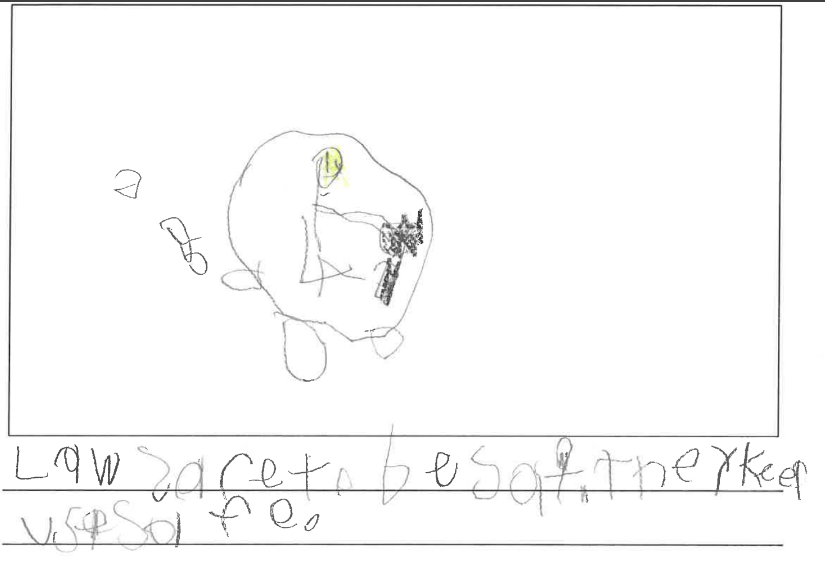 Laws are to be saf. they keep
us saf fe.